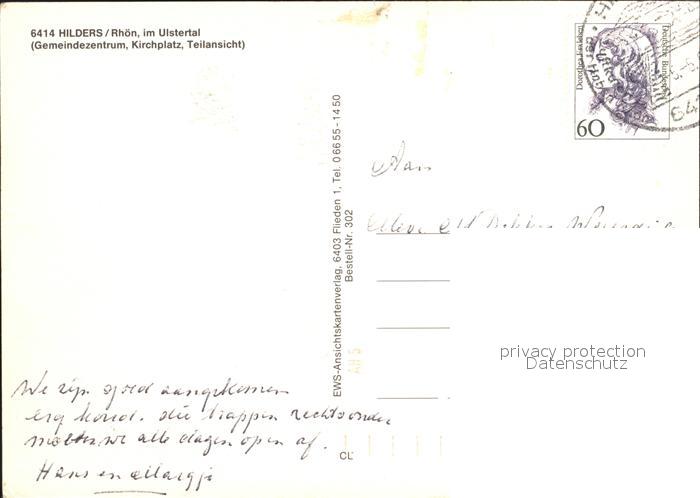 6414 HILDERS/Rhön, im Ulstertal
(Gemeindezentrum, Kirchplatz, Teilansicht)
Dorothea Erxleben
Deutsche Bundespost
60
EWS-Ansichtskartenverlag, 6403 Flieden 1, Tel. 06655-1450
Bestell-Nr. 302
Aan
privacy protection
Datenschutz
We zijn goed aangekomen
erg koud. die trappen rechtsonder
moeten we alle dagen op en af.
Hans en
CL